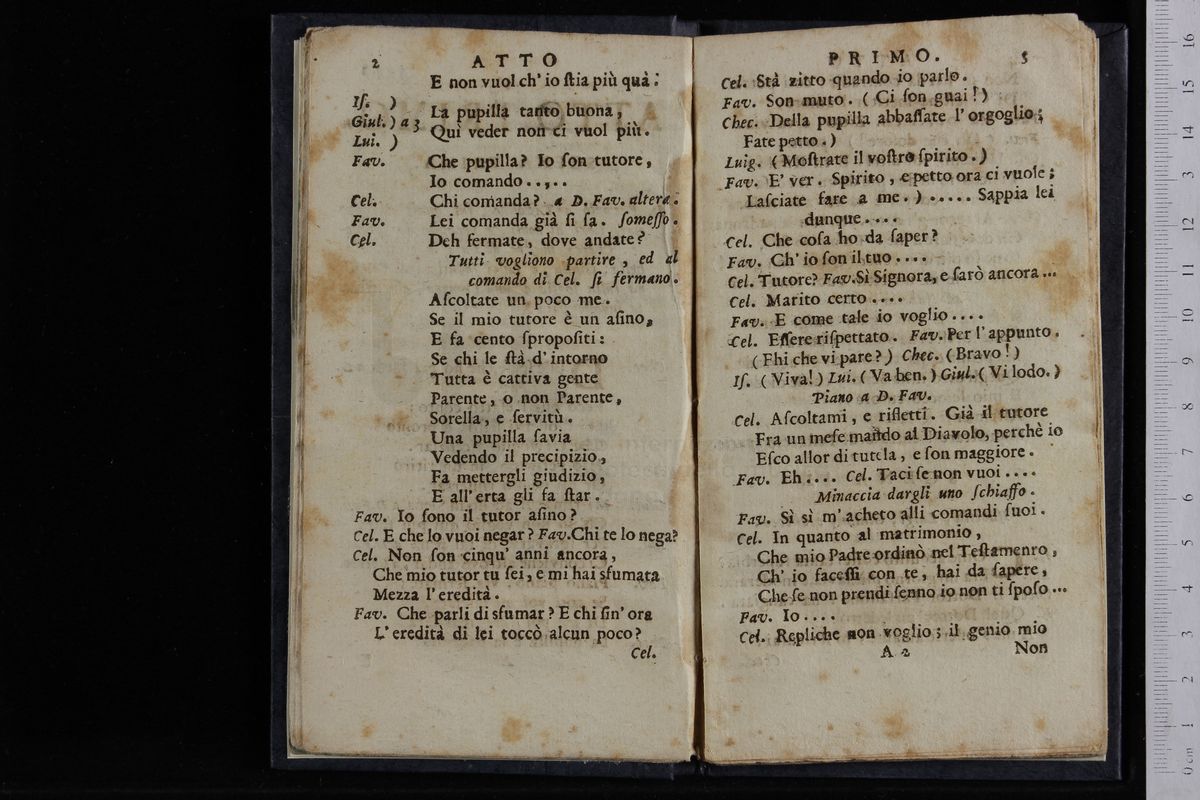 2 ATTO
E non vuol ch' io ſtia più quà.
Iſ. )
Giul. ) a 3 La pupilla tanto buona,
Lui. ) Quì veder non ci vuol più.
Fav. Che pupilla? Io ſon tutore,
Io comando.....
Cel. Chi comanda? a D. Fav. altera.
Fav. Lei comanda già ſi ſa. ſomeſſo.
Cel. Deh fermate, dove andate?
Tutti vogliono partire, ed al
comando di Cel. ſi fermano.
Aſcoltate un poco me.
Se il mio tutore è un aſino,
E fa cento ſpropoſiti:
Se chi le ſtà d' intorno
Tutta è cattiva gente
Parente, o non Parente,
Sorella, e ſervitù.
Una pupilla ſavia
Vedendo il precipizio,
Fa mettergli giudizio,
E all' erta gli fa ſtar.
Fav. Io ſono il tutor aſino?
Cel. E che lo vuoi negar? Fav. Chi te lo nega?
Cel. Non ſon cinqu' anni ancora,
Che mio tutor tu ſei, e mi hai sfumata
Mezza l' eredità.
Fav. Che parli di sfumar? E chi ſin' ora
L' eredità di lei toccò alcun poco?
Cel.
PRIMO. 5
Cel. Stà zitto quando io parlo.
Fav. Son muto. ( Ci ſon guai!)
Chec. Della pupilla abbaſſate l' orgoglio;
Fate petto.)
Luig. (Moſtrate il voſtro ſpirito.)
Fav. E' ver. Spirito, e petto ora ci vuole;
Laſciate fare a me. ) ..... Sappia lei
dunque....
Cel. Che coſa ho da ſaper?
Fav. Ch' io ſon il tuo....
Cel. Tutore? Fav. Sì Signora, e ſarò ancora...
Cel. Marito certo....
Fav. E come tale io voglio....
Cel. Eſſere riſpettato. Fav. Per l' appunto.
(Ehi che vi pare?) Chec. (Bravo!)
Iſ. (Viva!) Lui. (Va ben.) Giul. (Vi lodo.)
Piano a D. Fav.
Cel. Aſcoltami, e rifletti. Già il tutore
Fra un meſe mando al Diavolo, perchè io
Eſco allor di tutela, e ſon maggiore.
Fav. Eh.... Cel. Taci ſe non vuoi....
Minaccia dargli uno ſchiaffo.
Fav. Sì sì m' acheto alli comandi ſuoi.
Cel. In quanto al matrimonio,
Che mio Padre ordinò nel Teſtamenro,
Ch' io faceſſi con te, hai da ſapere,
Che ſe non prendi ſenno io non ti ſpoſo...
Fav. Io....
Cel. Repliche non voglio; il genio mio
A 2 Non